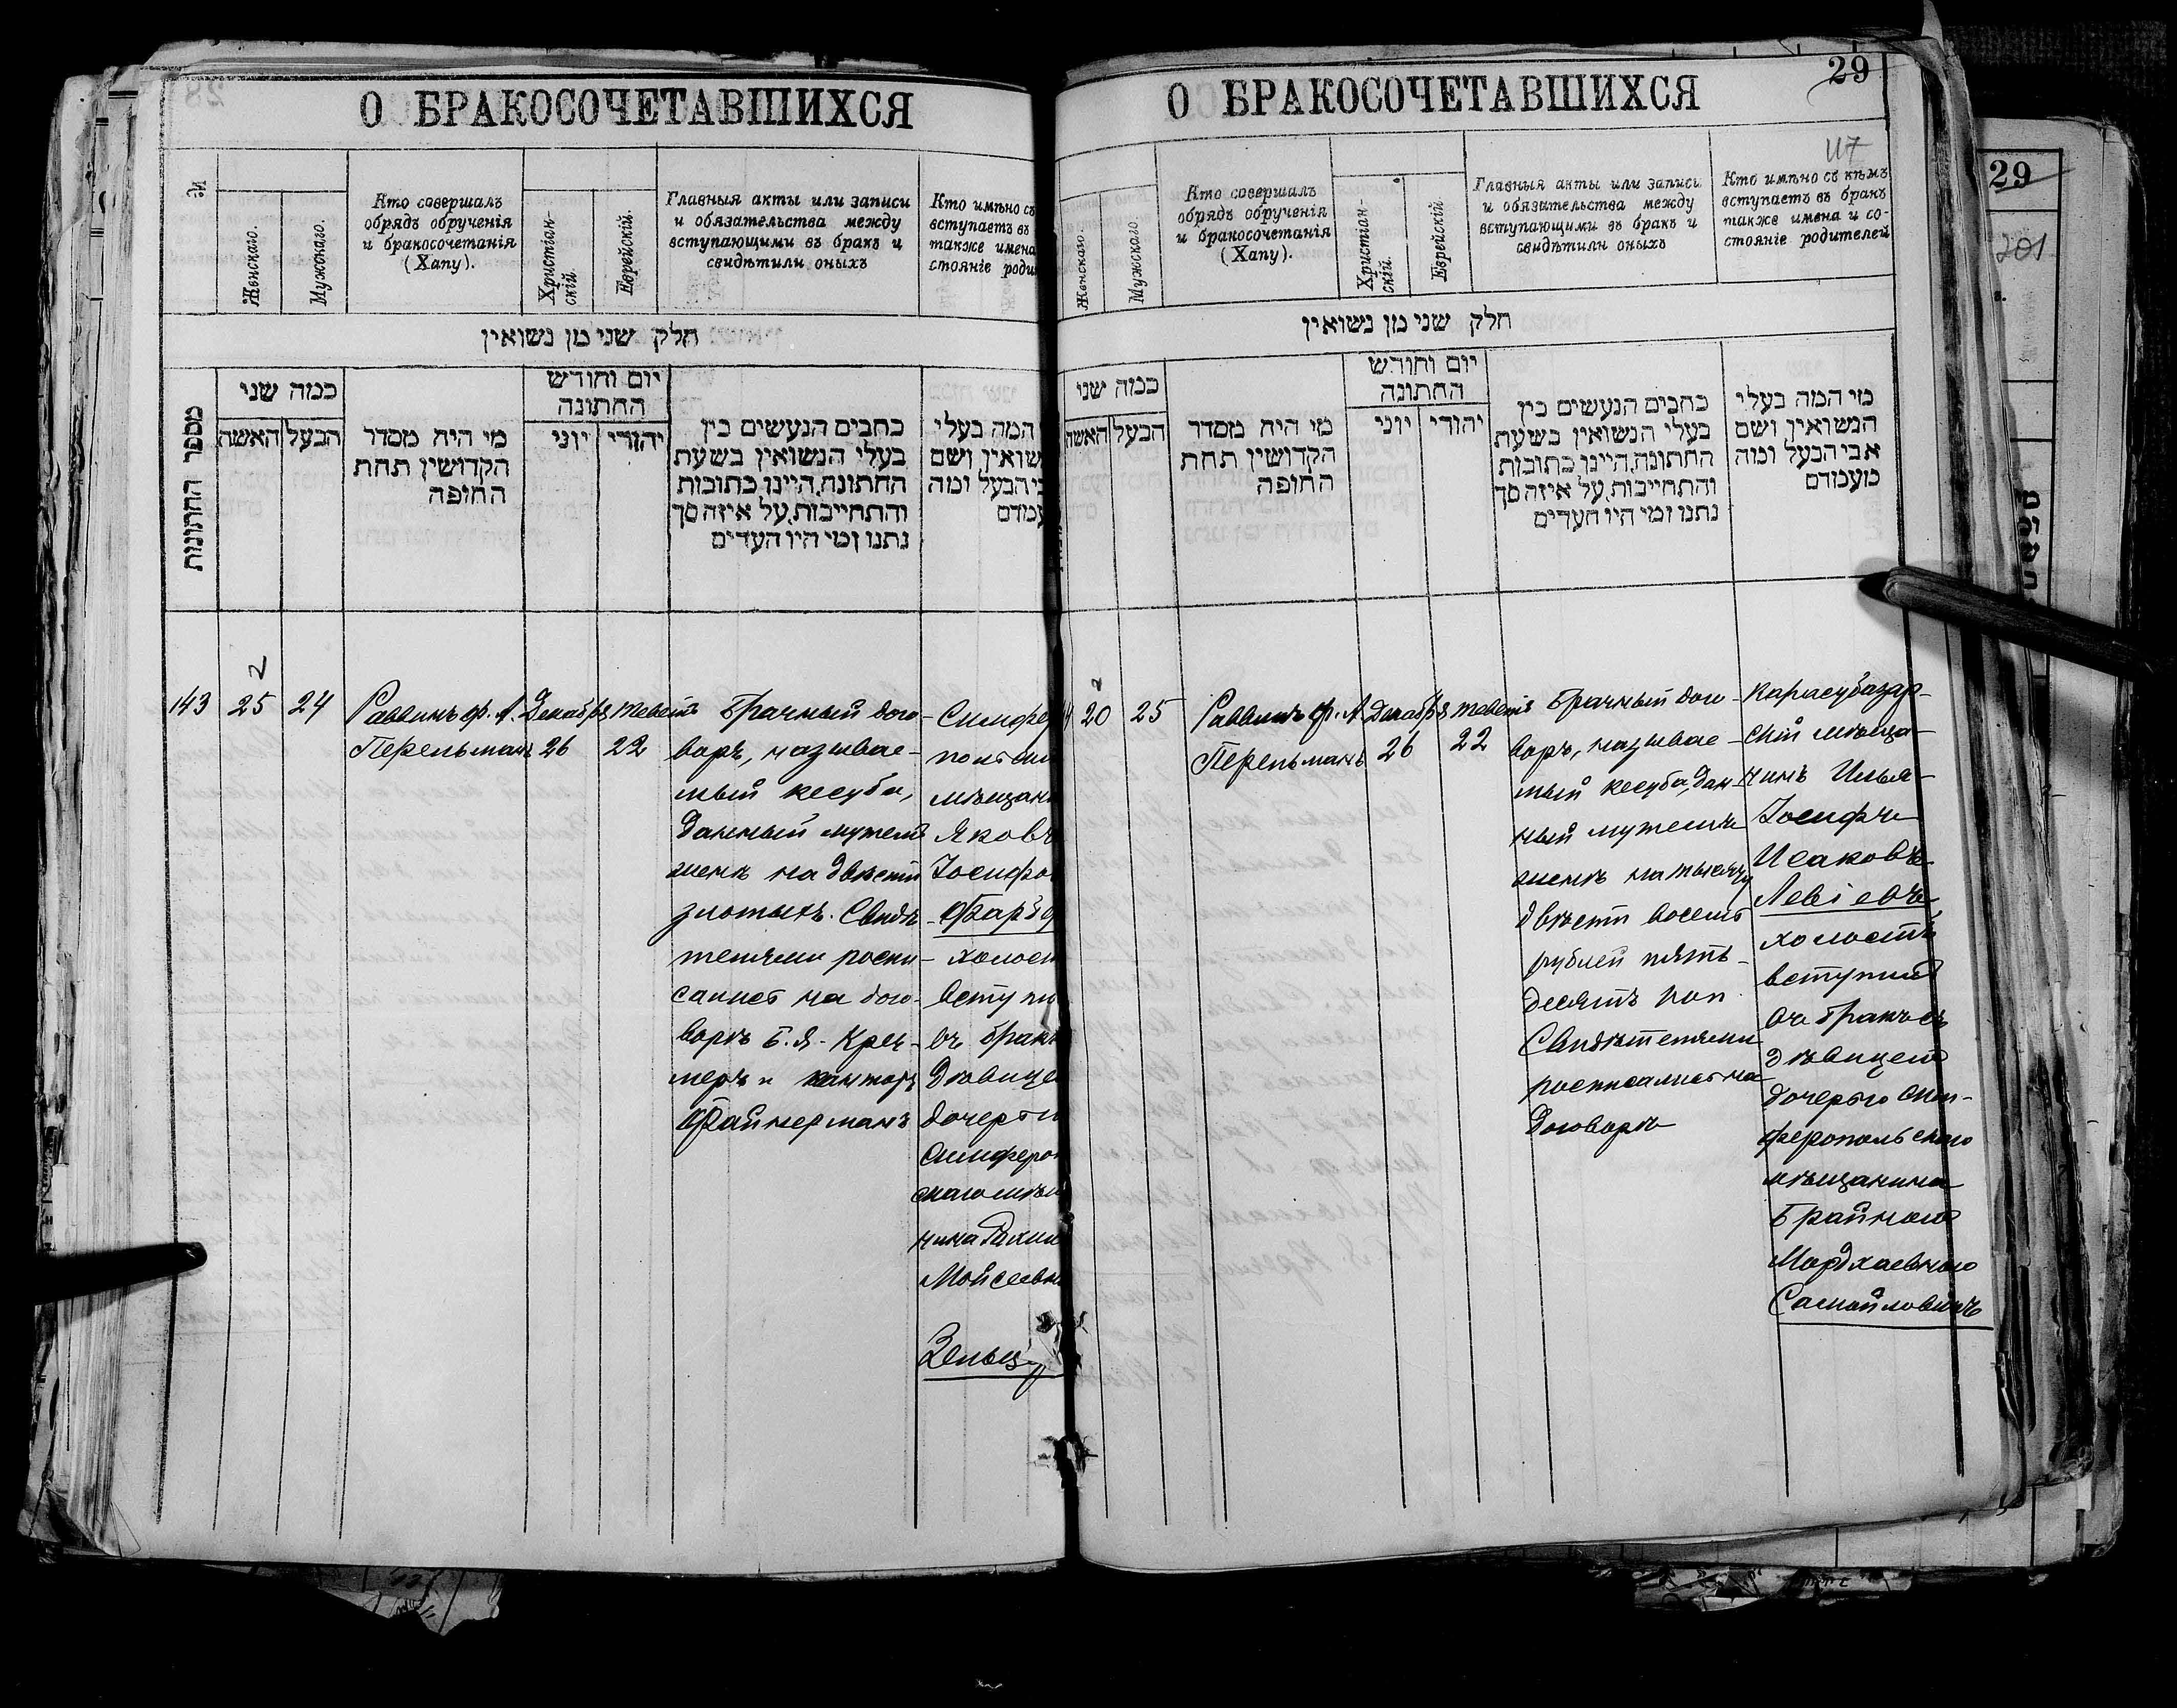 О БРАКОСОЧЕТАВШИХСЯ
№
Женскаго.
Мужскаго.
Кто совершалъ
обрядъ обрученія
и бракосочетанія
(Хапу).
Христіан-
скій.
Еврейскій.
Главныя акты или записи
и обязательства между
вступающими въ бракъ и
свидѣтили оныхъ
Кто имѣно съ
вступаетъ въ
также имена
стояніе роди
חלק שני מן נשואין
מספר החתונות
כמה שני
האשה
הבעל
מי היה מסדר
הקדושין תחת
החופה
יום וחודש
החתונה
יוני
יהודי
כתבים הנעשים בין
בעלי הנשואין בשעת
החתונה, היינו כתובות
והתחייבות, על איזה סך
נתנו ומי היו העדים
המה בעלי
שואין ושם
בי הבעל ומה
עמדם
143
25
24
Раввинъ ф. А.
Перельманъ
Декабрь
26
Теветъ
22
Брачный дого-
воръ, называе-
мый кесуба,
данный мужемъ
женѣ на двѣсти
злотыхъ. Свидѣ-
телями роспи-
сались на дого-
ворѣ Б. Я. Крей-
меръ и канторъ
Файнерманъ
Симфер
польск
мѣщан
Яковъ
Іосифо
холост
вступи
въ бракъ
дѣвице
дочерью
Симферо
скаго мѣщ
нина
Моисеевн
О БРАКОСОЧЕТАВШИХСЯ
29
117
Женскаго.
Мужскаго.
Кто совершалъ
обрядъ обрученія
и бракосочетанія
(Хапу).
Христіан-
скій.
Еврейскій
Главныя акты или записи
и обязательства между
вступающими въ бракъ и
свидѣтили оныхъ
Кто имѣно съ кѣмъ
вступаетъ въ бракъ
также имена и со-
стояніе родителей
חלק שני מן נשואין
כמה שני
האשה
הבעל
מי היה מסדר
הקדושין תחת
החופה
יום וחודש
החתונה
יוני
יהודי
כתבים הנעשים בין
בעלי הנשואין בשעת
החתונה, היינו כתובות
והתחייבות, על איזה סך
נתנו ומי היו העדים
מי המה בעלי
הנשואין ושם
אבי הבעל ומה
מעמדם
20
25
Раввинъ ф. А.
Перельманъ
Декабрь
26
Теветъ
22
Брачный дого-
воръ, называе-
мый кесуба, дан-
ный мужемъ
женѣ на тысячу
двѣсти восемь
рублей пять-
десятъ коп.
Свидѣтелями
росписались на
договорѣ
Карасубазар-
скій мѣща-
нинъ Илья-
Іосифъ
Исаковъ
Левіевъ,
холостъ
вступилъ
въ бракъ съ
дѣвицею
дочерью Сим-
феропольскаго
мѣщанина
Брайною
Мордхаевною
Самойловичъ
29
201